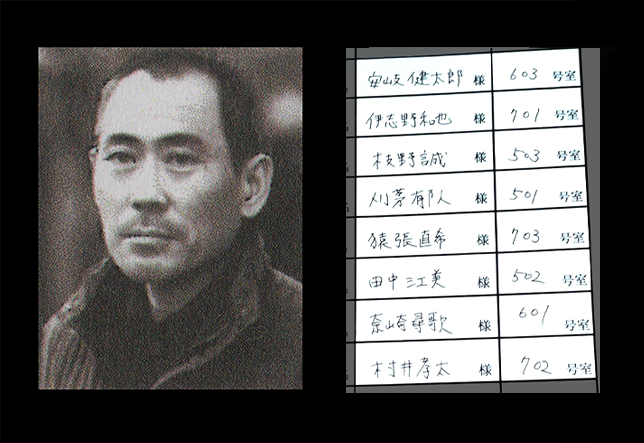 安岐健太郎 様 603 号室
伊志野和也 様 701 号室
枝野誠 様 503 号室
刈茅有人 様 501 号室
猿張直希 様 703 号室
田中江美 様 502 号室
奈崎尋歌 様 601 号室
村井孝太 様 702 号室